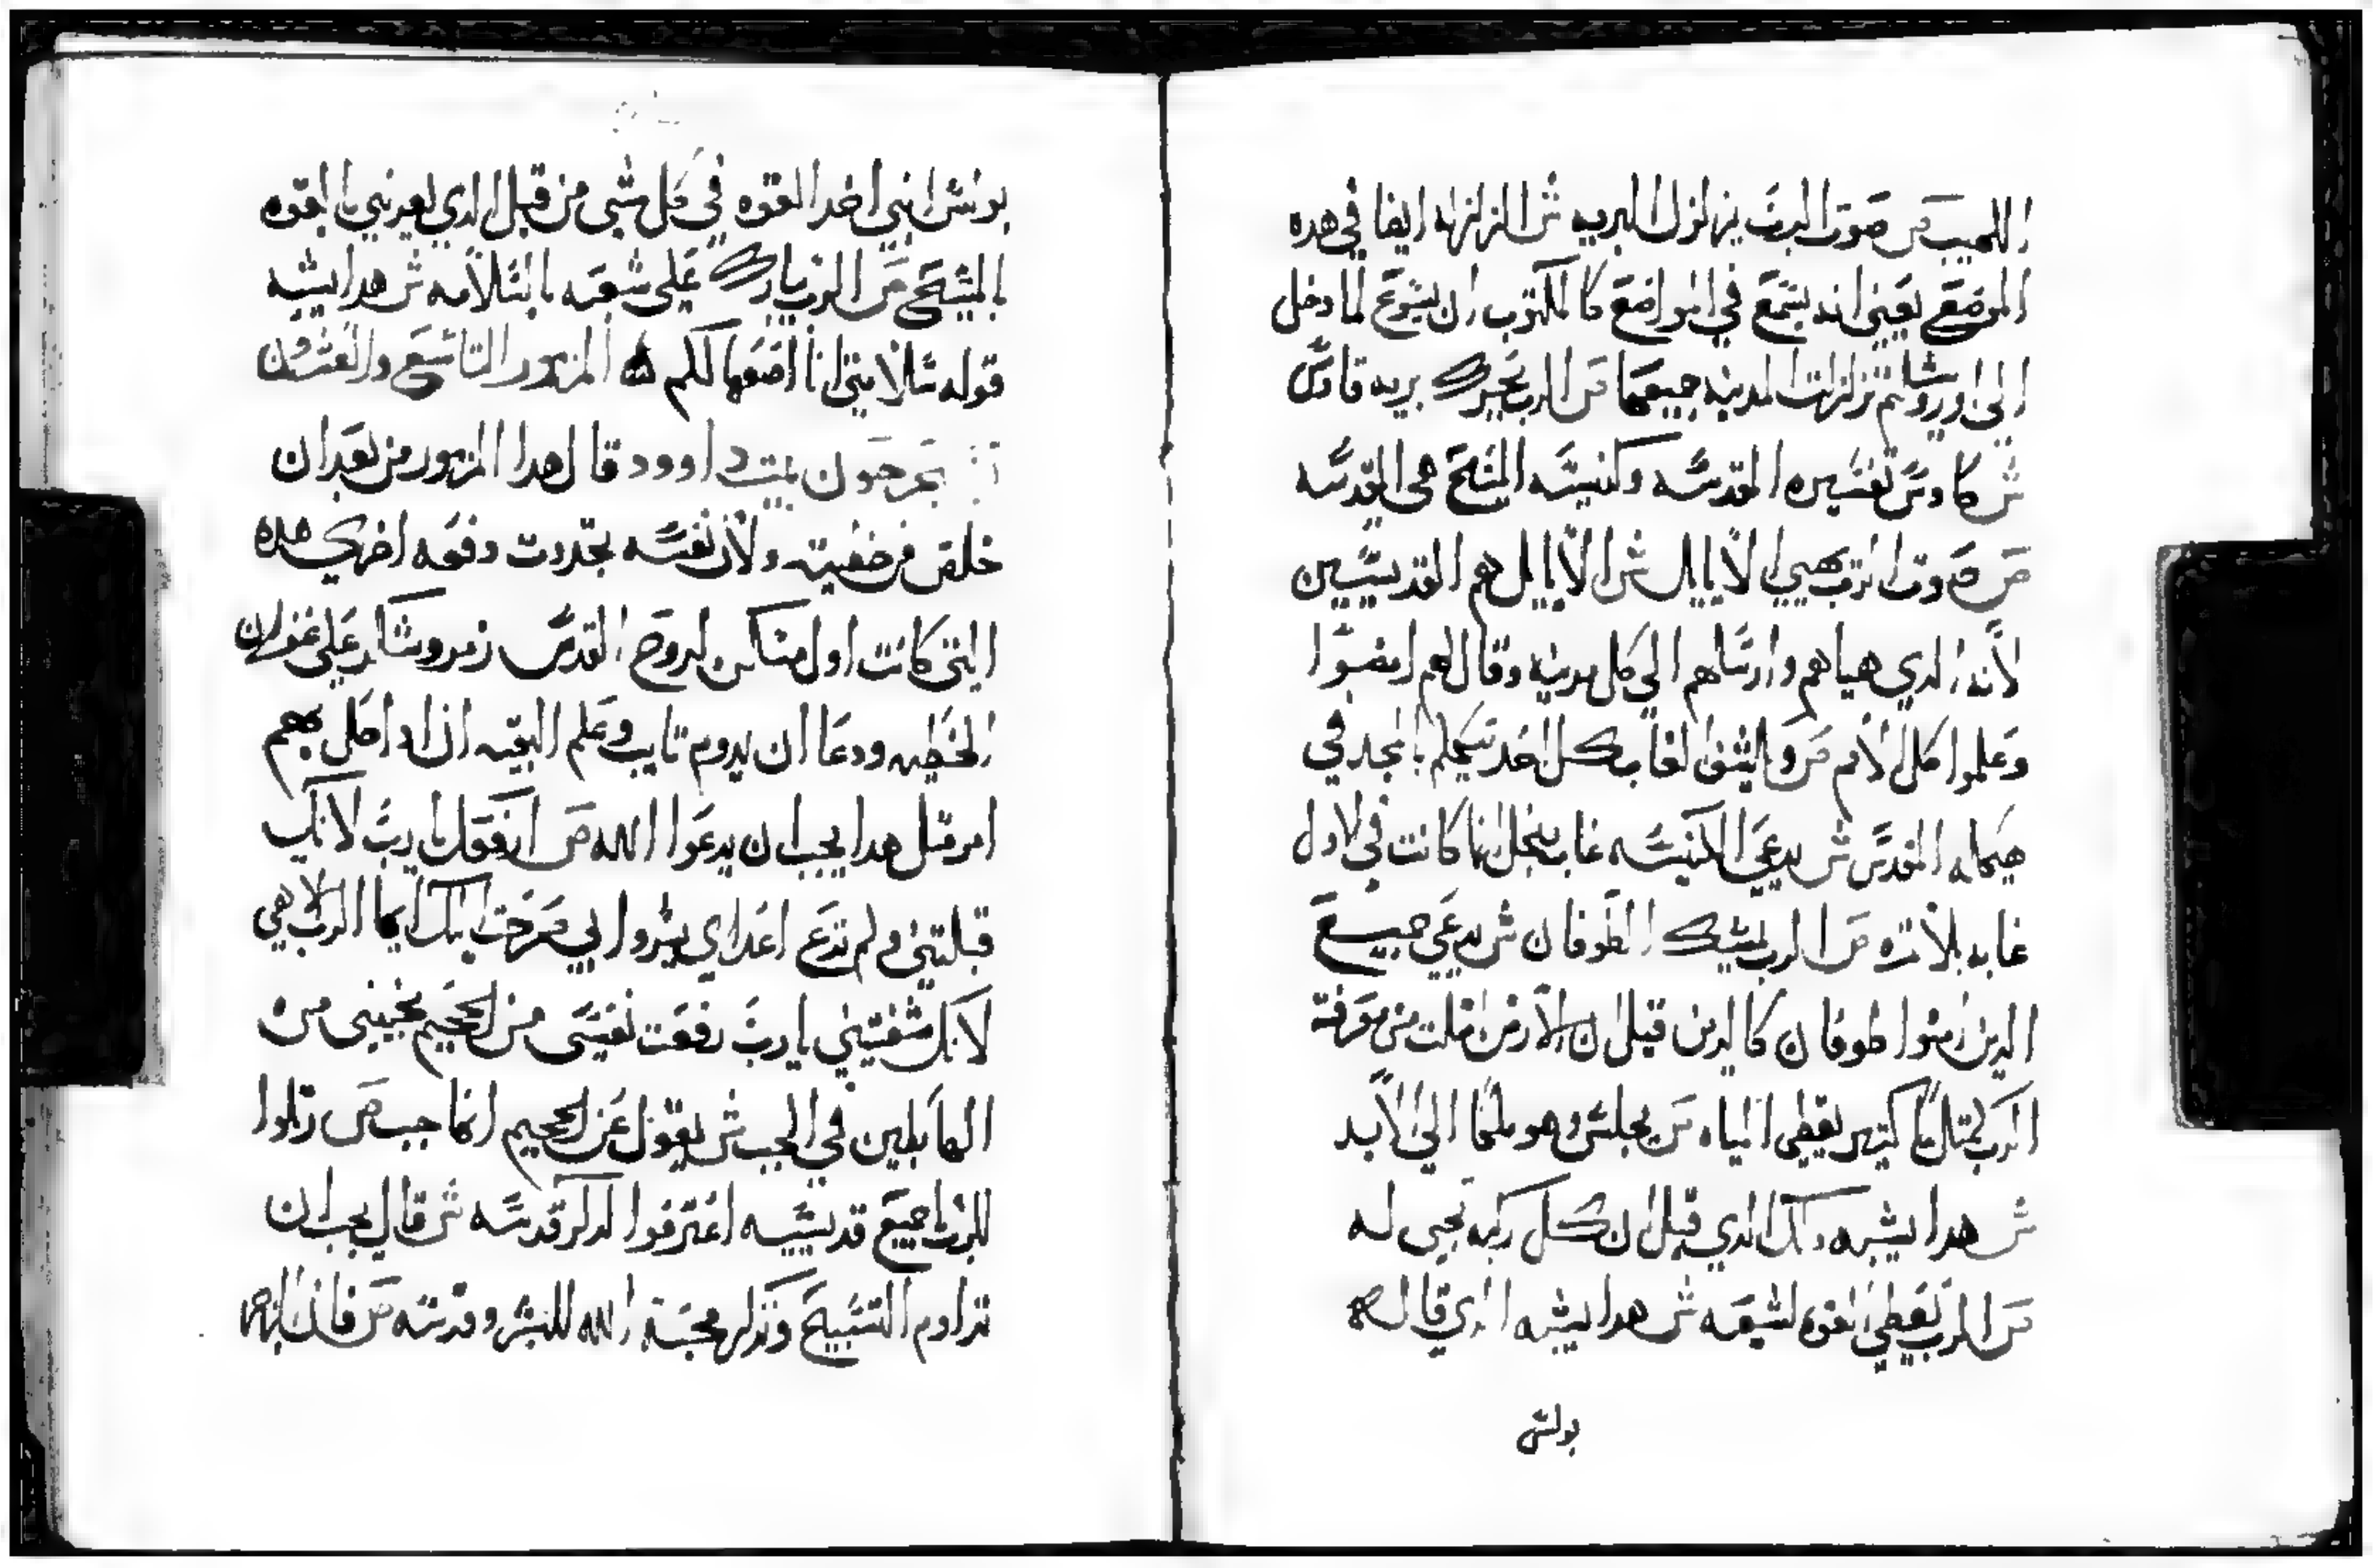 اللهيب ص صوت الرب يزلزل البريه ش الزلزله ايضا في هده
الموضع يعني انه يسمع في المواضع كالمكتوب ان يسوع لما دخل
الى اورشليم تزلزلت المدينه جميعها ص الرب يحرك بريه قادس
ش كادس تفسيره المقدسه وكنيسه المسيح هي المقدسه
ص صوت الرب يهيي الايايل ش الايايل هم القديسين
لانه الدي هياهم وارسلهم الي كل مدينه وقال لهم امضوا
وعلموا كل الامم ص و الغاب كل احد تيكلم بالمجد في
هيكله المقدس ش يدعي الكنيسه غاب لانها كانت في لاول
غابه بلا تمره ص الرب يسكن الطوفان ش يدعي جميع
الدين امنوا طوفان كالدين قيل ان الارض امتلت من معرفة
الرب كمتل ما كتير يغطي المياه ص يجلس وهو ملكا الي الابد
ش هدا يشبه داك الدي قيل ان كل ركبه تجتي له
ص الرب يعطي القوه لشعبه ش هدا يشبه الدي قاله
بولس
بولس انني اخد القوه في كل شي من قبل الدي يعزيني بالقوه
المسيح ص الرب يبارك على شعبه بالسلامه ش هدا يشبه
قوله سلامتي انا اضعها لكم المزمور التاسع والعشرون
بيت داوود قال هدا المزمور من بعد ان
خلص من خطيته ولان نفسه تجددت دفعه اخري هده
التي كانت اول مساكن لروح القدس زمر وشكر على غفران
الخطيه ودعا ان يدوم تايب وعلم البقيه ان ادا كل بهم
امر متل هدا يجب ان يدعوا الله ص ارفعك يا رب لانك
قبلتني ولم تدع اعداي يسروا بي صرخت اليك ايها الرب الاهي
لانك شفيتني يا رب رفعت نفسي من الجحيم نجيتني من
الهابطين في الجب ش يقول عن الجحيم انها جب ص رتلوا
للرب يا جميع قديسيه اعترفوا لدكر قدسه ش قال يجب ان
تداوم التسبيح وتدكر محبة الله للبشر وقدسه ص فان الرجز